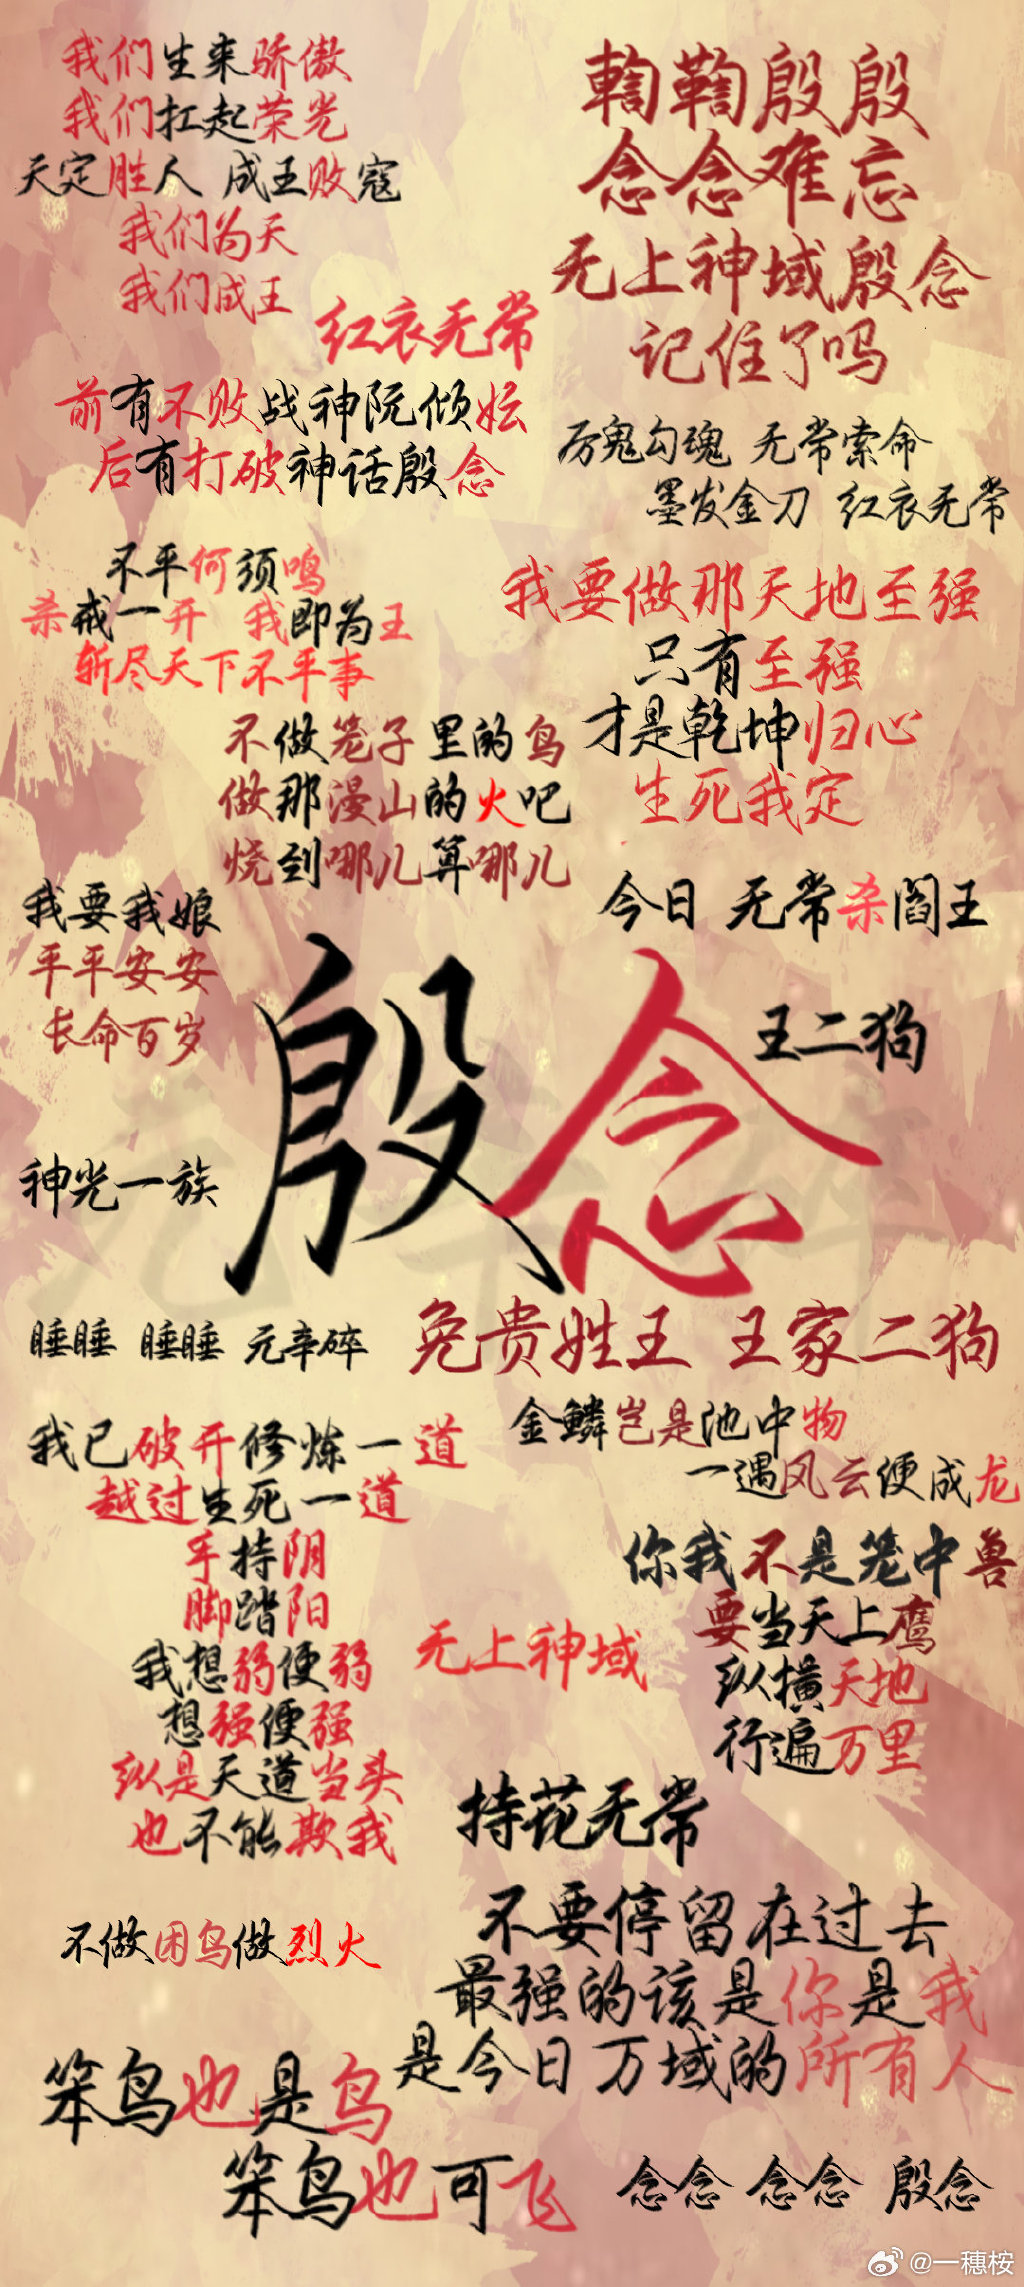 我们生来骄傲
我们扛起荣光
天定胜人 成王败寇
我们为天
我们成王
红衣无常
鞫鞫殷殷
念念难忘
无上神域殷念
记住了吗
前有不败战神阮倾妘
后有打破神话殷念
厉鬼勾魂 无常索命
墨发金刀 红衣无常
不平何须鸣
杀戒一开 我即为王
斩尽天下不平事
我要做那天地至强
只有至强
才是乾坤归心
生死我定
不做笼子里的鸟
做那漫山的火吧
烧到哪儿算哪儿
今日 无常杀阎王
我要我娘
平平安安
长命百岁
殷念
王二狗
神光一族
元辛碎
睡睡 睡睡 元辛碎
免贵姓王 王家二狗
金鳞岂是池中物
一遇风云便成龙
我已破开修炼一道
越过生死一道
手持阴
脚踏阳
我想弱便弱
想强便强
纵是天道当头
也不能欺我
你我不是笼中兽
要当天上鹰
纵横天地
行遍万里
无上神域
持花无常
不做困鸟做烈火
不要停留在过去
最强的该是你是我
是今日万域的所有人
笨鸟也是鸟
笨鸟也可飞
念念 念念 殷念
@一穗桉